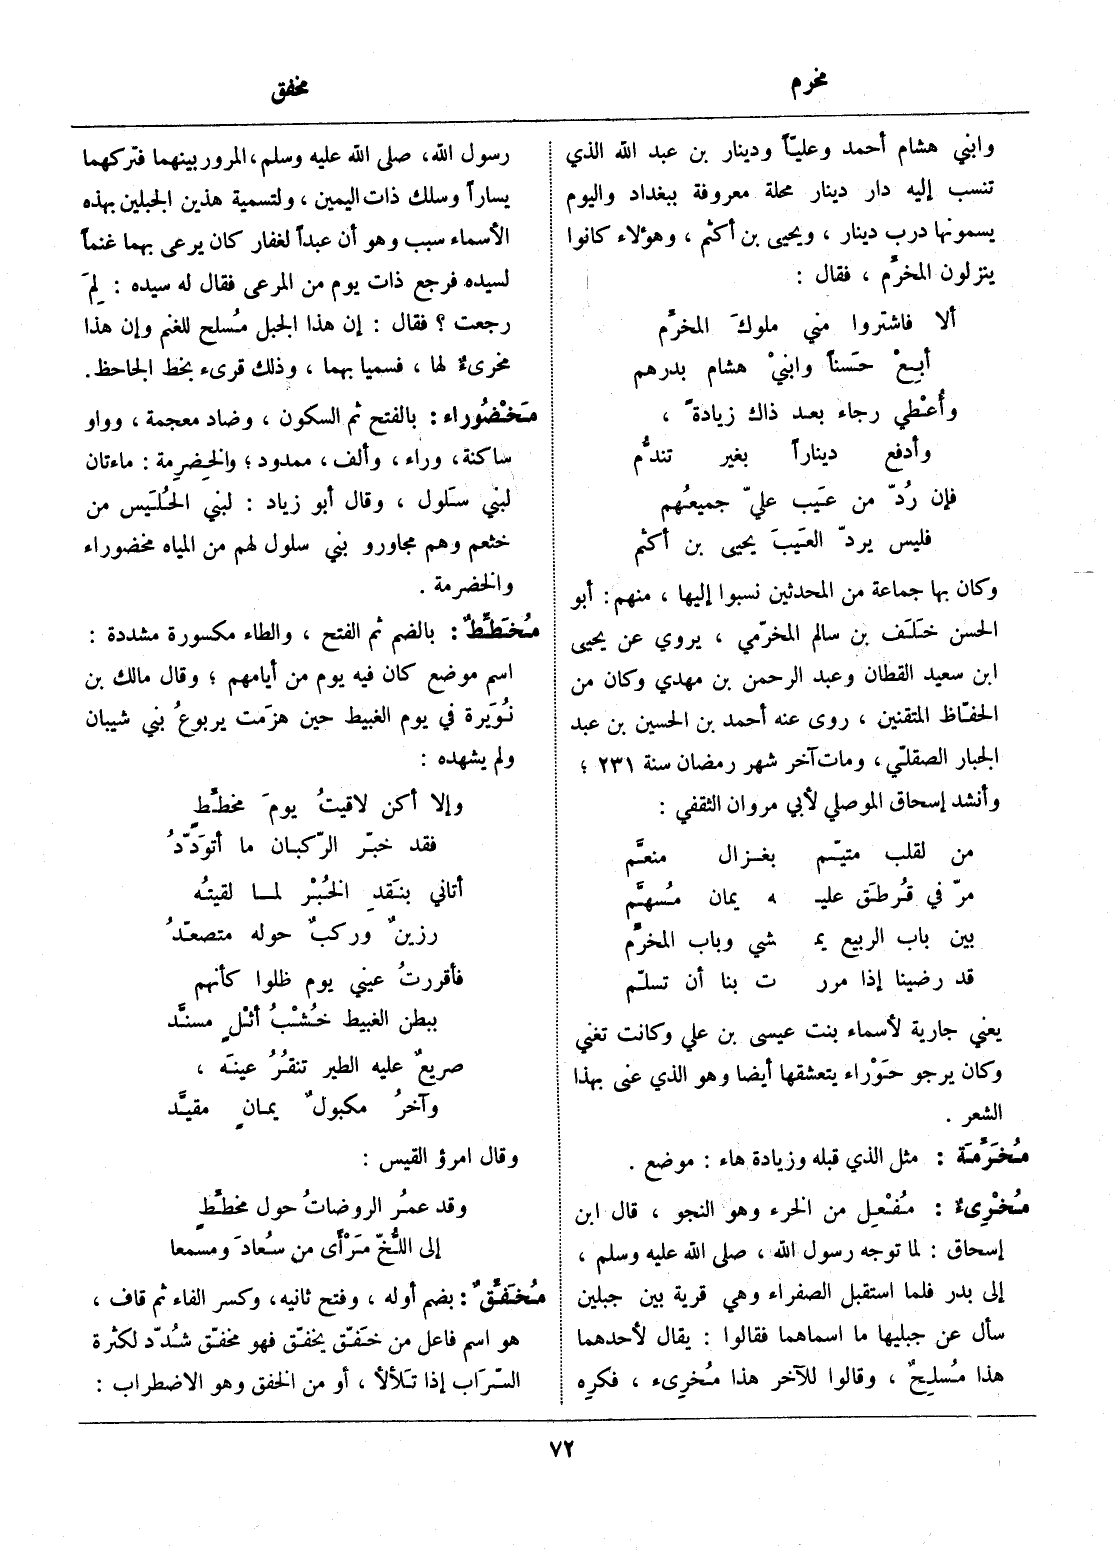 مخرم
مخفق
وابني هشام أحمد وعليّاً ودينار بن عبد الله الذي
تنسب إليه دار دينار محلة معروفة ببغداد واليوم
يسمونها درب دينار ، ويحيى بن أكثم ، وهؤلاء كانوا
ينزلون المخرَّم ، فقال :
ألا فاشتروا مني ملوكَ المخرَّم
أَبِعْ حَسَناً وابنيْ هشام بدرهم
وأُعْطي رجاء بعد ذاك زيادةً ،
وأدفع ديناراً بغير تندُّم
فإن رُدّ من عَيب عليّ جميعُهم
فليس يردّ العَيبَ يحيى بن أكثم
وكان بها جماعة من المحدثين نسبوا إليها ، منهم : أبو
الحسن خَلَف بن سالم المخرّمي ، يروي عن يحيى
ابن سعيد القطان وعبد الرحمن بن مهدي وكان من
الحفّاظ المتقنين ، روى عنه أحمد بن الحسين بن عبد
الجبار الصقلّي ، ومات آخر شهر رمضان سنة ٢٣١ ؛
وأنشد إسحاق الموصلي لأبي مروان الثقفي :
من لقلب متيّم بغزال منعَّم
مرّ في قُرطَق عليـ ـه يمان مُسهَّم
بين باب الربيع يمـ ـشي وباب المخرَّم
قد رضينا إذا مرر ت بنا أن تسلّم
يعني جارية لأسماء بنت عيسى بن علي وكانت تغني
وكان يرجو حَوْراء يتعشقها أيضا وهو الذي عنى بهذا
الشعر .
مُخَرَّمَة : مثل الذي قبله وزيادة هاء : موضع .
مُخْرِىءٌ : مُفْعِل من الخرء وهو النجو ، قال ابن
إسحاق : لما توجه رسول الله ، صلى الله عليه وسلم ،
إلى بدر فلما استقبل الصفراء وهي قرية بين جبلين
سأل عن جبليها ما اسماهما فقالوا : يقال لأحدهما
هذا مُسلِحٌ ، وقالوا للآخر هذا مُخرِىء ، فكره
رسول الله، صلى الله عليه وسلم، المرور بينهما فتركهما
يساراً وسلك ذات اليمين ، ولتسمية هذين الجبلين بهذه
الأسماء سبب وهو أن عبداً لغفار كان يرعى بهما غنماً
لسيده فرجع ذات يوم من المرعى فقال له سيده : لِمَ
رجعت ؟ فقال : إن هذا الجبل مُسلح للغنم وإن هذا
مخرىءٌ لها ، فسميا بهما ، وذلك قرىء بخط الجاحظ.
مَخْضُوراء : بالفتح ثم السكون ، وضاد معجمة ، وواو
ساكنة، وراء ، وألف ، ممدود ؛ والخِضرِمة : ماءتان
لبني سَلول ، وقال أبو زياد : لبني الحُلَيس من
خثعم وهم مجاورو بني سلول لهم من المياه مخضوراء
والخضرمة .
مُخَطِّطٌ : بالضم ثم الفتح ، والطاء مكسورة مشددة :
اسم موضع كان فيه يوم من أيامهم ؛ وقال مالك بن
نُوَيرة في يوم الغبيط حين هزمت يربوعُ بني شيبان
ولم يشهده :
وإلا أكن لاقيتُ يومَ مخطِّطٍ
فقد خبّر الرّكبان ما أتودّدُ
أتاني بنَقدِ الخُبْر لما لقيتُه
رزينٌ وركبٌ حوله متصعّدُ
فأقررتُ عيني يوم ظلوا كأنهم
ببطن الغبيط خُشْبُ أثْلٍ مسنَّد
صريعٌ عليه الطير تنقُرُ عينَه ،
وآخرُ مكبولٌ يمانٍ مقيَّد
وقال امرؤ القيس :
وقد عمرُ الروضاتُ حول مخطِّطٍ
إلى اللُّخّ مَرْأى من سُعادَ ومسمعا
مُخَفِّقٌ : بضم أوله ، وفتح ثانيه، وكسر الفاء ثم قاف ،
هو اسم فاعل من خَفّق يخفّق فهو مخفّق شُدّد لكثرة
السّراب إذا تلألأ ، أو من الخفق وهو الاضطراب :
٧٢